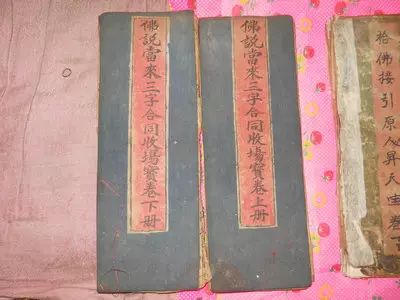 佛説當來三字合同收場寳卷下册
佛説當來三字合同收塲寳卷上册
拾佛接引原人昇天寳卷下